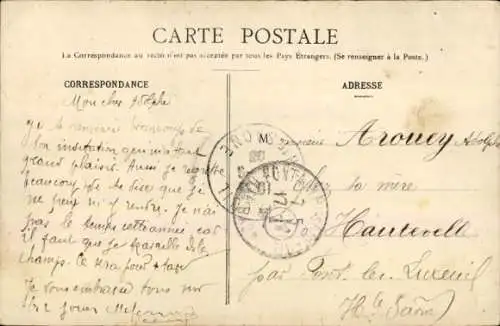 CARTE POSTALE
La Correspondance au recto n'est pas acceptée par tous les Pays Étrangers. (Se renseigner à la Poste.)
CORRESPONDANCE
Mon cher Adolphe
je te remercie beaucoup de
ton invitation qui m'a fait
grand plaisir. Aussi je regrette
beaucoup de te dire que je
ne peux m'y rendre. Je n'ai
pas le temps cette année car
il faut que je travaille
champs. Ce sera pour
Je vous embrasse tous
ADRESSE
M Arouey Adolphe
mère
Hauteville
par Font. les Luxeuil
Hte Saône